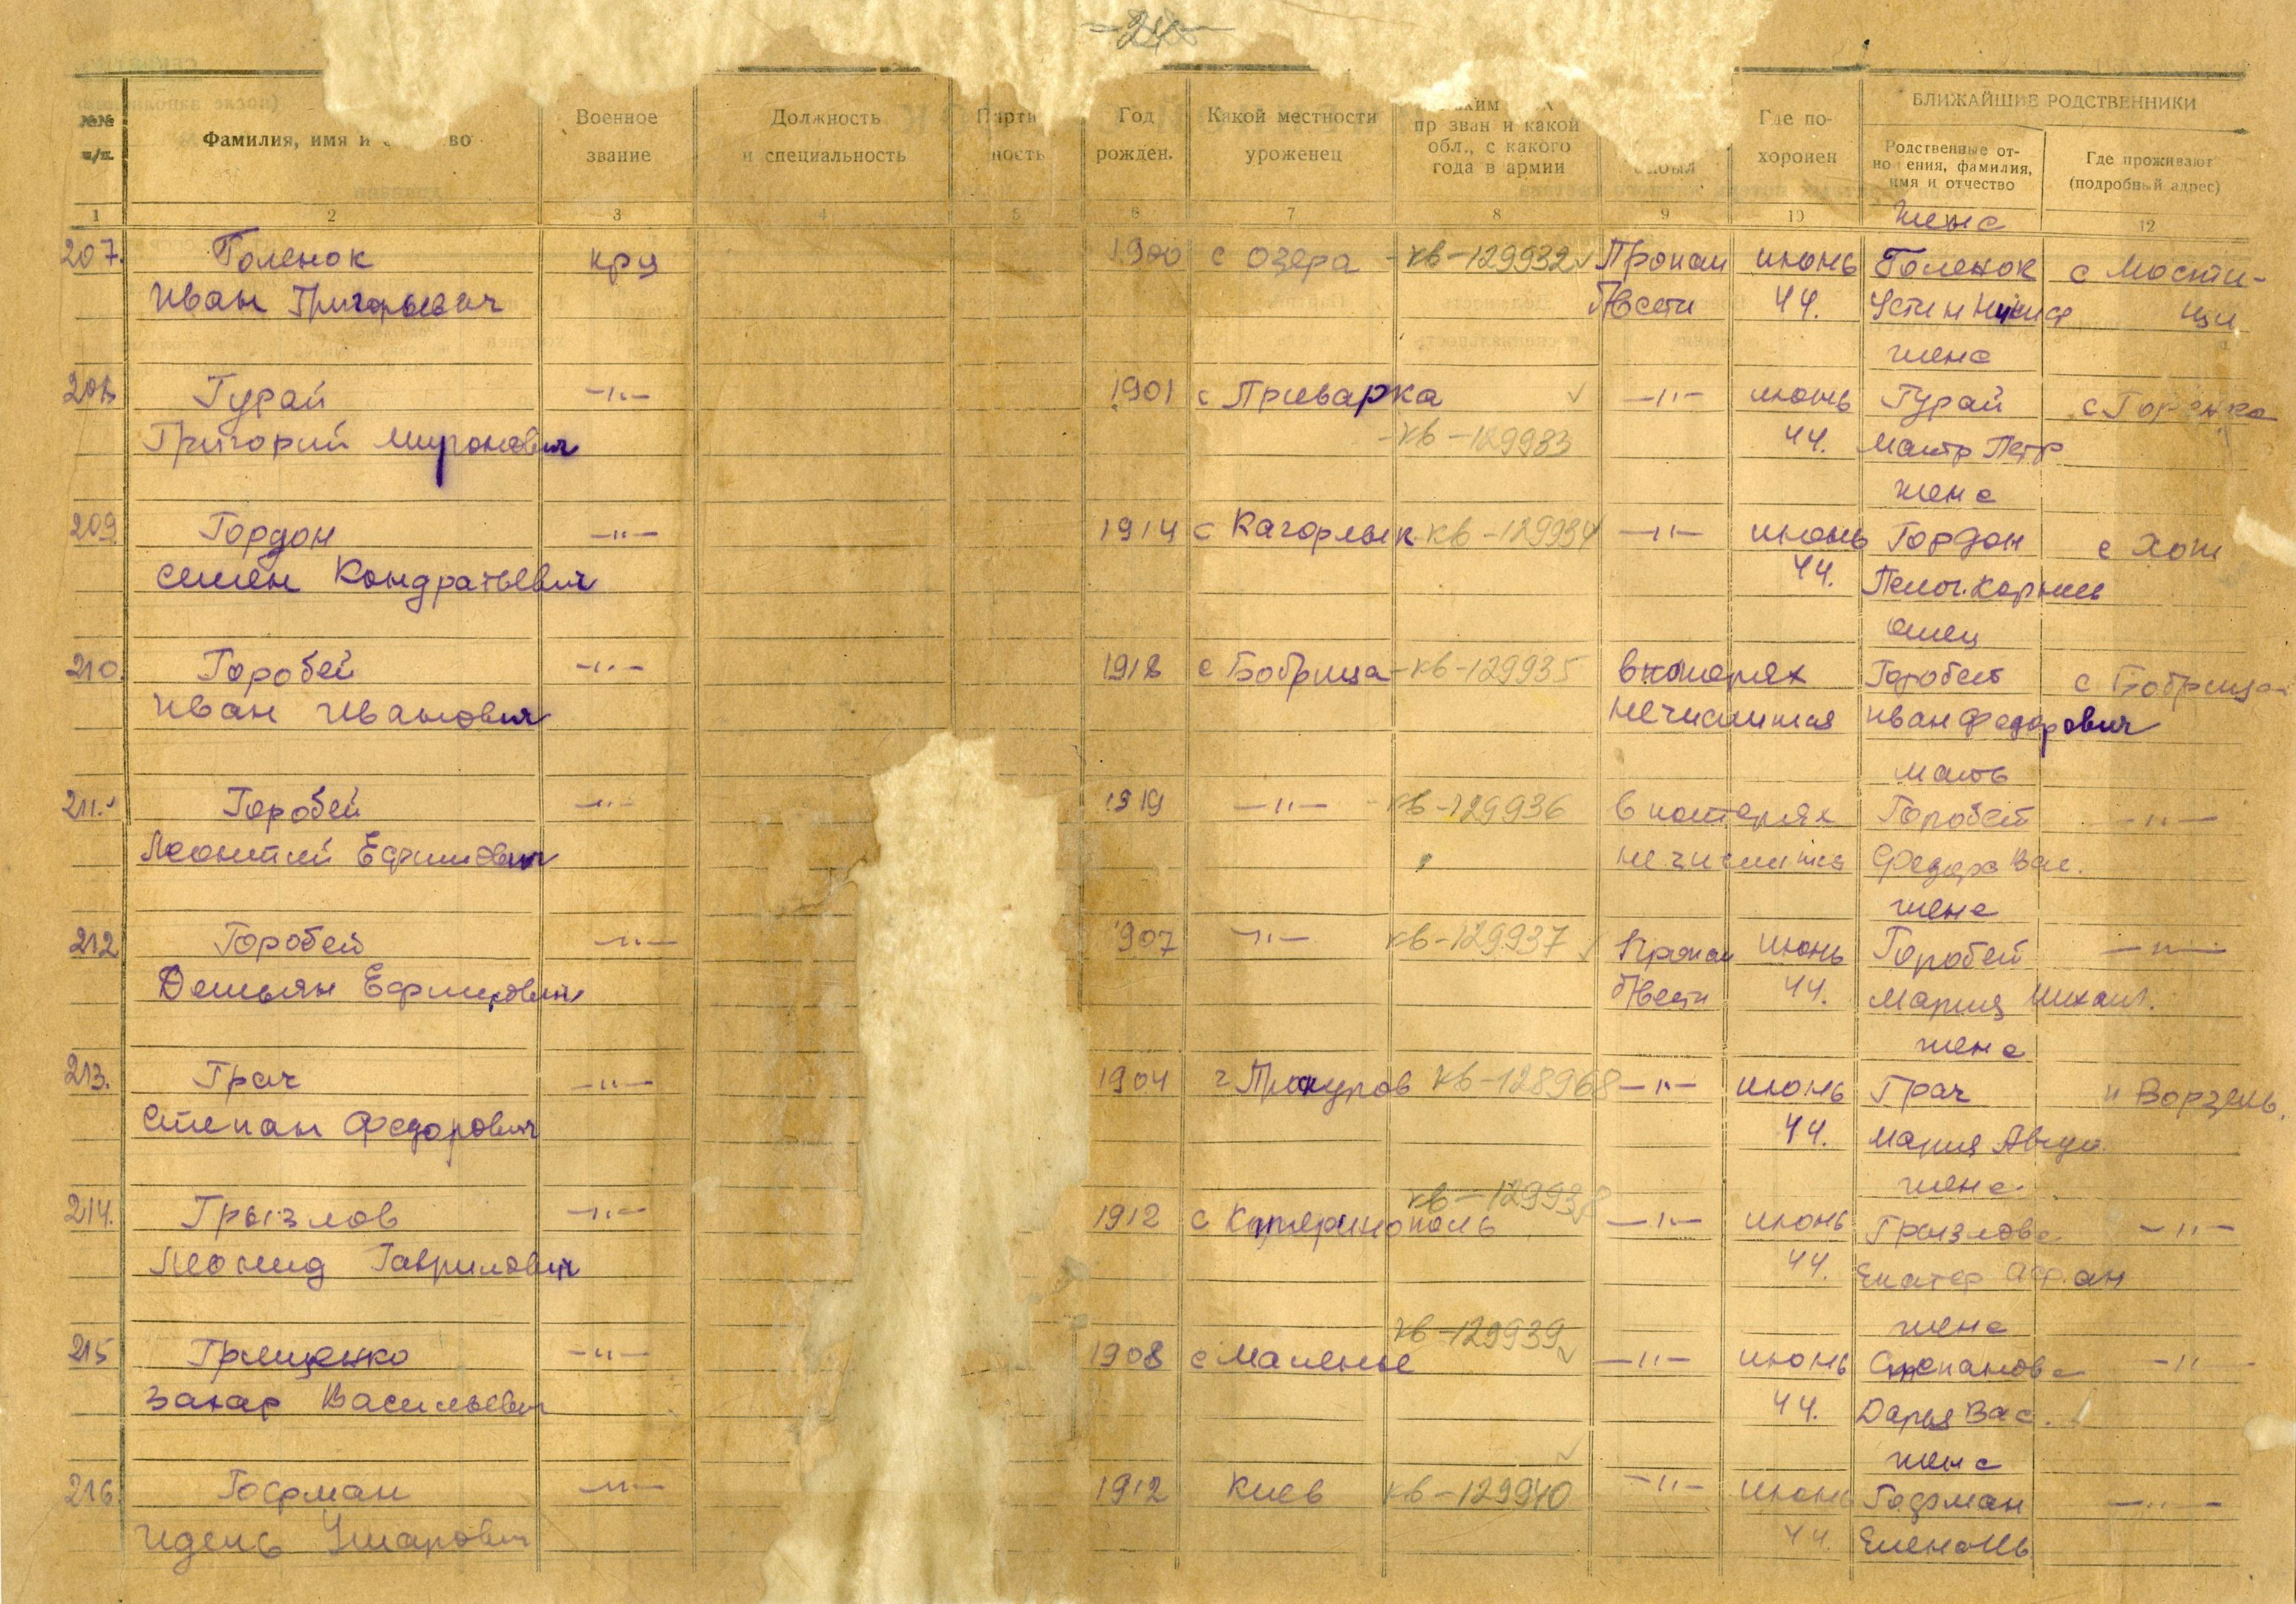 -24-
№№ п/п.
Фамилия, имя и во
Военное звание
Должность и специальность
Парти ность
Год рожден.
Какой местности уроженец
ким
пр зван и какой обл., с какого года в армии
был
Где по- хоронен
БЛИЖАЙШИЕ РОДСТВЕННИКИ
Родственные от- но ения, фамилия, имя и отчество
Где проживают (подробный адрес)
1 2 3 4 5 6 7 8 9 10 12
жена
207. Голенок кр-ц 1900 с Озера -кв-129932 Пропал июнь Голенок с Мости-
Иван Григорьевич б/вести 44. Устин Никиф щи
жена
208 Гурай -"- 1901 с Приварка -"- июнь Гурай с Горенка
Григорий Миронович -кв-129933 44. Мотр Петр
жена
209 Гордон -"- 1914 с Кагорлык-кв-129934 -"- июнь Гордон с Хот
Семен Кондратьевич 44. Пелог. Корнеев
отец
210. Горобей -"- 1918 с Бобрица-кв-129935 в потерях Горобей с Бобрица
Иван Иванович не числится Иван Федорович
мать
211. Горобей -"- 1919 -"- -кв-129936 в потерях Горобей -"-
Леонтий Ефимович не числится Федора Вас.
жена
212 Горобей -"- 907 -"- кв-129937 Пропал июнь Горобей -"-
Демьян Ефимович б/вести 44. Мария Михаил.
жена
213. Грач -"- 1904 г кв-128968 -"- июнь Грач п Ворзель,
Степан Федорович 44. Мария
кв-129938 жена
214. Грызлов -"- 1912 с Катеринополь -"- июнь Грызлова -"-
Леонид Гаврилович 44. Екатер Афан
кв-129939 жена
215 Грищенко -"- 1908 с Маленье -"- июнь Степанова -"-
Захар Васильевич 44. Дарья Вас.
жена
216. Гофман -"- 1912 Киев кв-129940 -"- июнь Гофман -"-
Идель 44. Елена